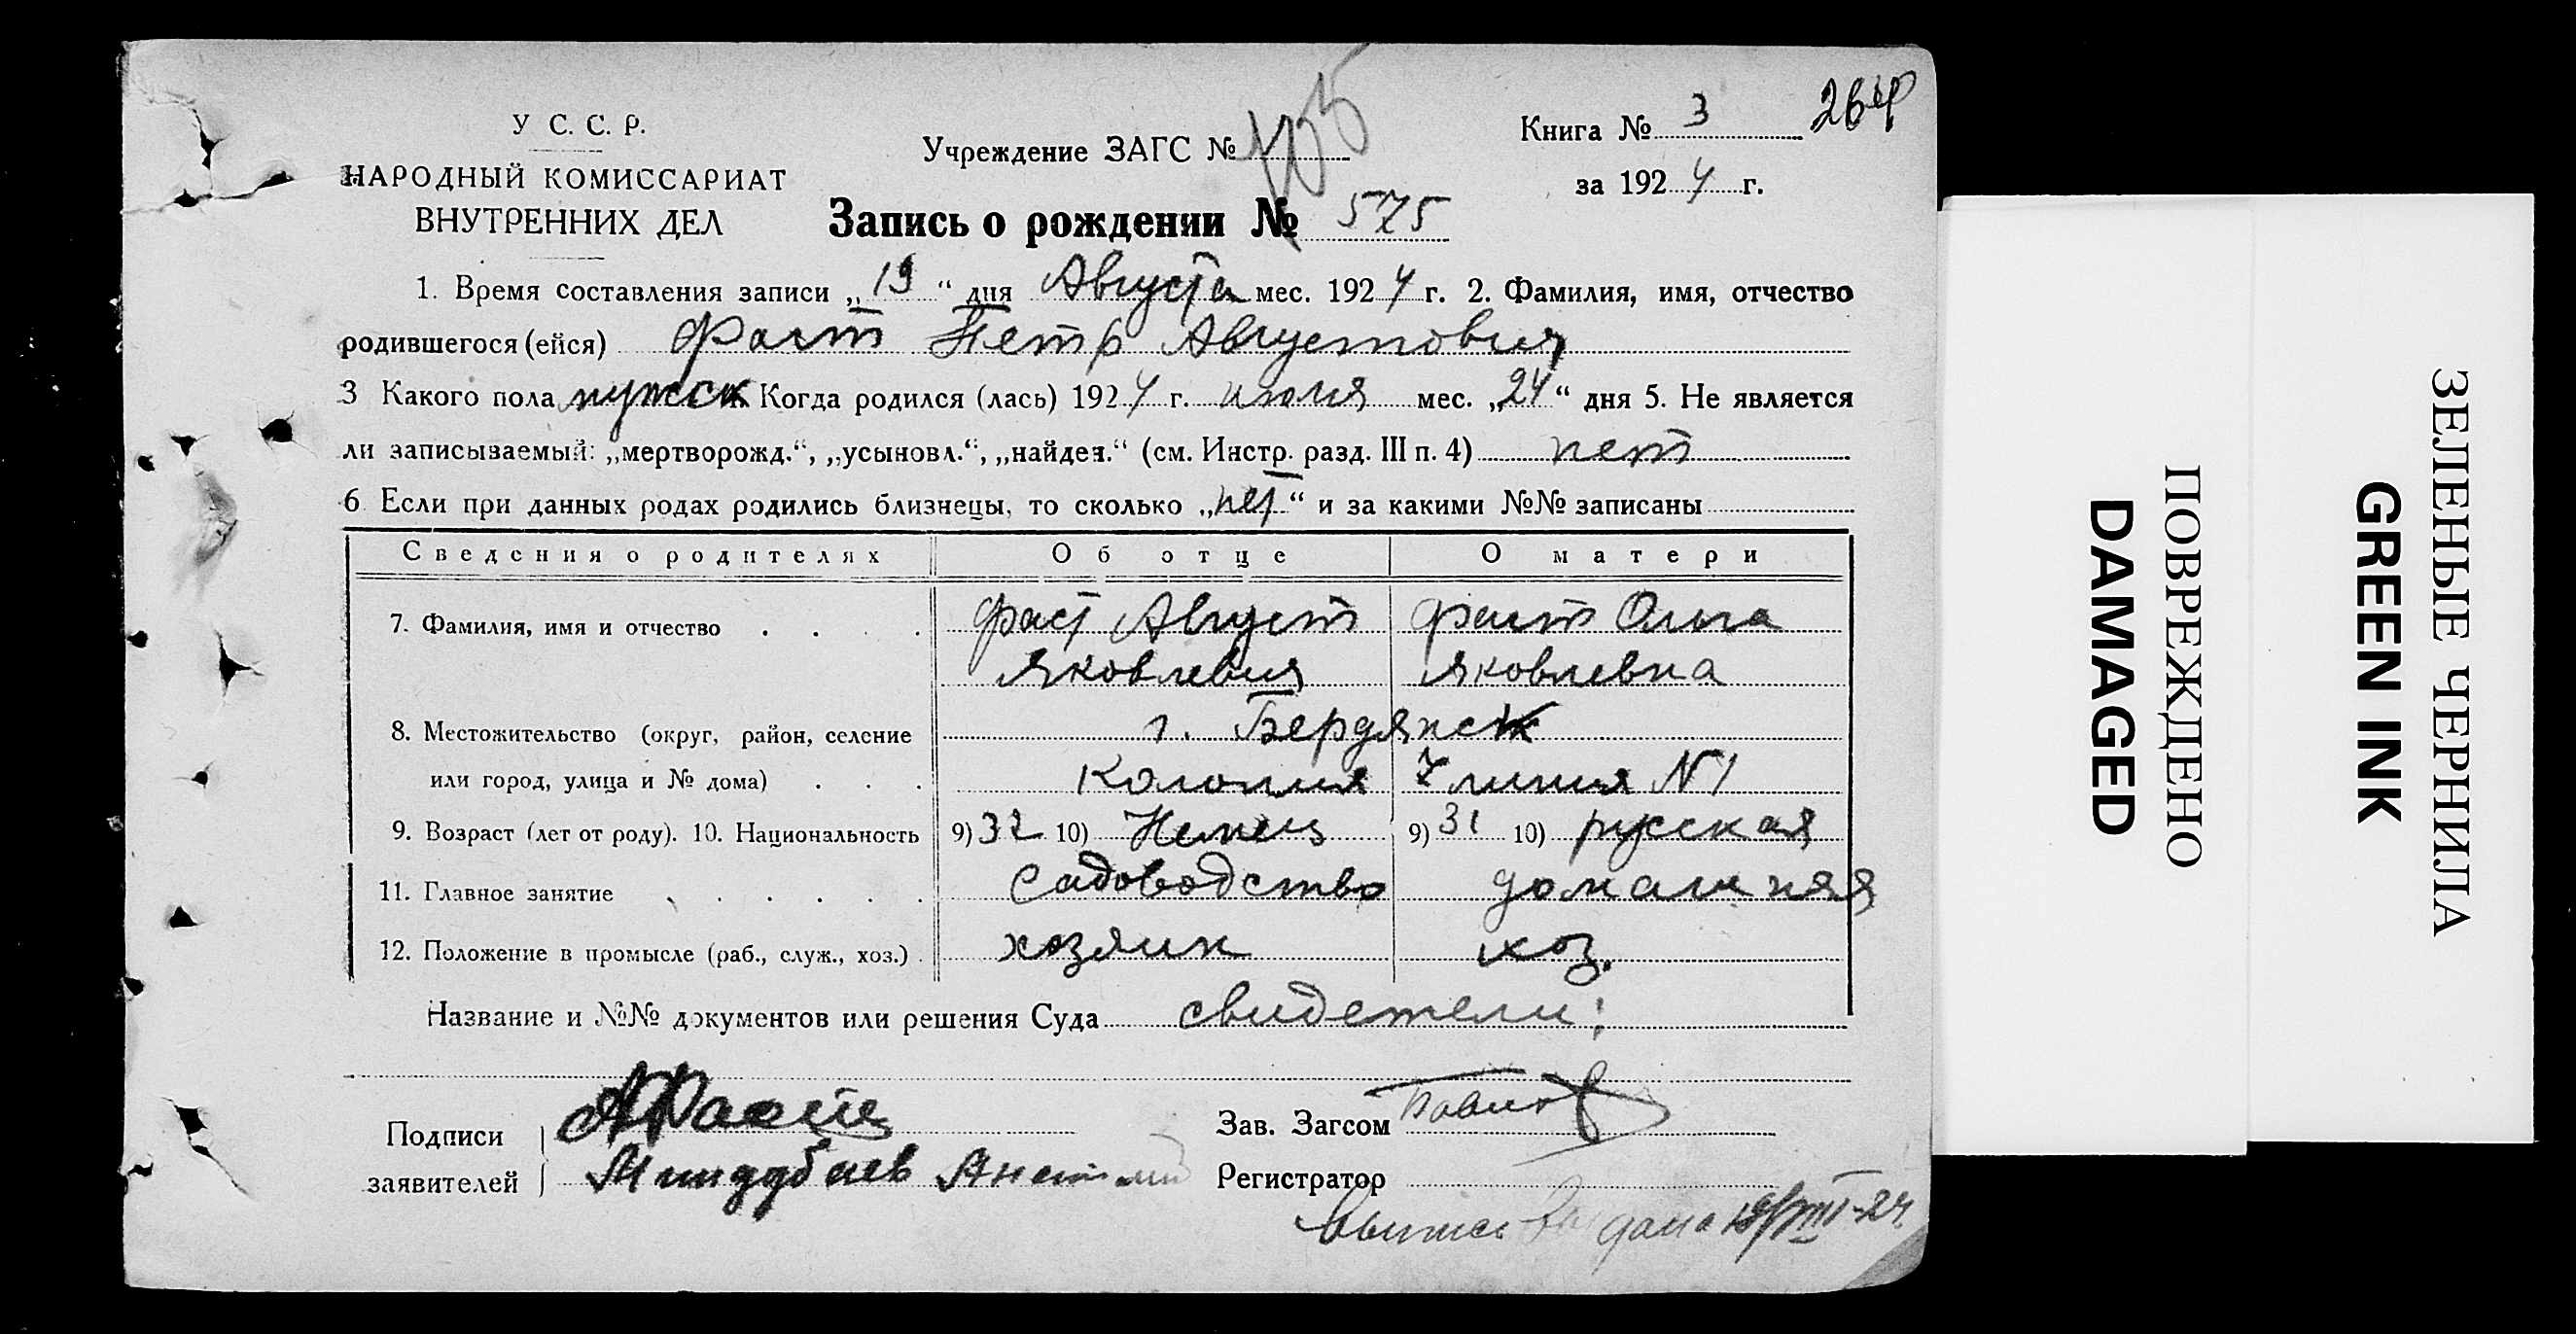 У С. С. Р.
НАРОДНЫЙ КОМИССАРИАТ
ВНУТРЕННИХ ДЕЛ
Учреждение ЗАГС №
Книга № 3
264
за 1924 г.
Запись о рождении № 575
1. Время составления записи „19“ дня Августа мес. 1924 г. 2. Фамилия, имя, отчество
родившегося (ейся) Фаст Петр Августович
3 Какого пола мужск Когда родился (лась) 1924 г. июля мес. „24“ дня 5. Не является
ли записываемый: „мертворожд.“, „усыновл.“, „найден.“ (см. Инстр. разд. III п. 4) нет
6 Если при данных родах родились близнецы, то сколько „нет“ и за какими №№ записаны
Сведения о родителях Об отце О матери
7. Фамилия, имя и отчество . . . . Фаст Август Фаст Ольга
Яковлевич Яковлевна
8. Местожительство (округ, район, селение г. Бердянск
или город, улица и № дома) . . . Колония 7 линия N 1
9. Возраст (лет от роду). 10. Национальность 9) 32 10) Немец 9) 31 10) русская
11. Главное занятие . . . . . . Садоводство домашняя
12. Положение в промысле (раб., служ., хоз.) . хозяин хоз.
Название и №№ документов или решения Суда свидетели:
Подписи АФаст Зав. Загсом
заявителей Регистратор
выдана 19/VIII-24.
ПОВРЕЖДЕНО
DAMAGED
ЗЕЛЕНЫЕ ЧЕРНИЛА
GREEN INK